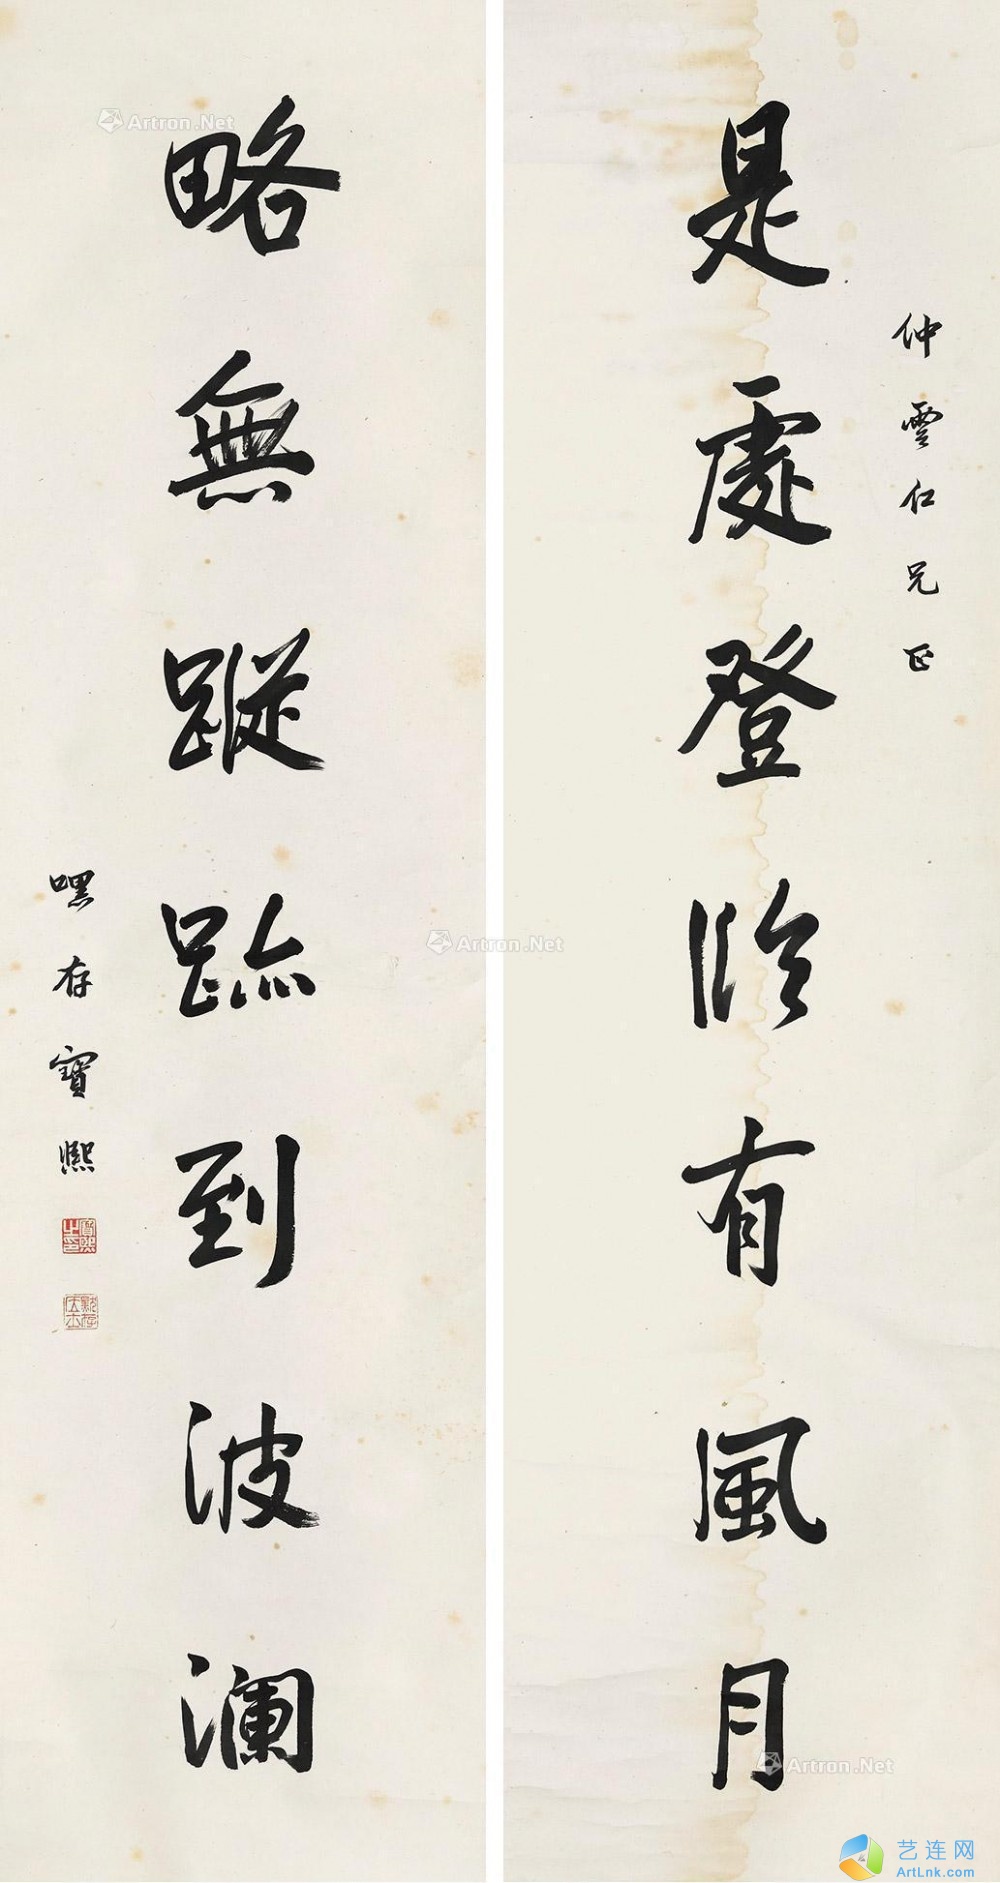 仲雲仁兄正
是處登臨有風月
略無蹤跡到波瀾
嘿存寶熙
寶熙之印
Artron.Net
Artron.Net
Artron.Net
艺连网
ArtLnk.com